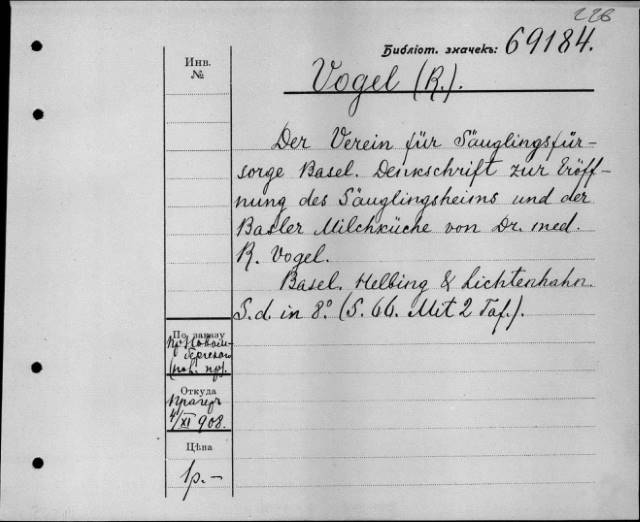 226
Библіот. значекъ: 69184.
Инв.
№
Vogel (R.).
Der Verein für Säuglingsfür-
sorge Basel. Denkschrift zur Eröff-
nung des Säuglingsheims und der
Basler Milchküche von Dr. med.
R. Vogel.
Basel. Helbing & Lichtenhahn.
S.d. in 8º. (S. 66. Mit 2 Taf.).
По заказу
Откуда
Прагеръ
4/XI 908.
Цѣна
1р.-